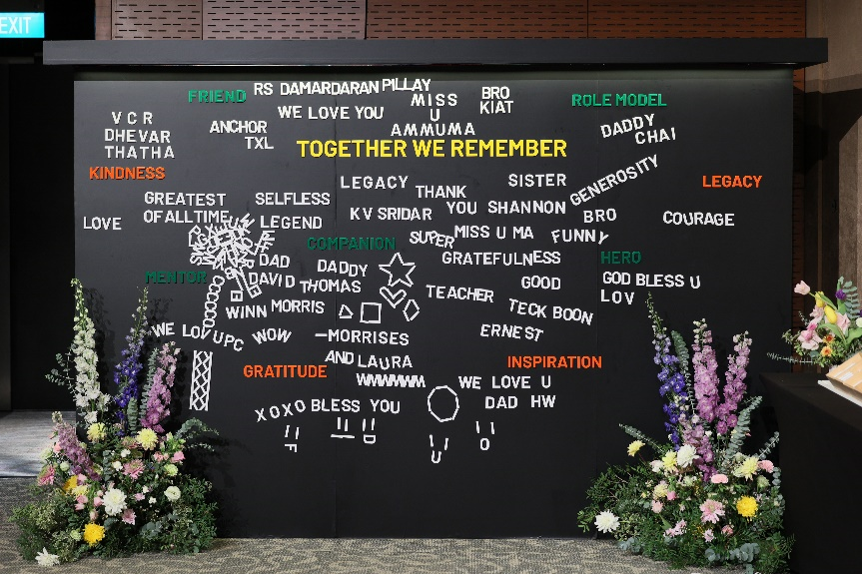 EXIT
FRIEND
RS DAMARDARAN PILLAY
MISS
U
AMMUMA
BRO
KIAT
ROLE MODEL
WE LOVE YOU
V C R
DHEVAR
THATHA
ANCHOR
TXL
DADDY
CHAI
TOGETHER WE REMEMBER
KINDNESS
LEGACY
THANK
YOU SHANNON
SISTER
GENEROSITY
LEGACY
GREATEST
OF ALL TIME
SELFLESS
LEGEND
KV SRIDAR
BRO
COURAGE
LOVE
COMPANION
SUPER
MISS U MA
FUNNY
GRATEFULNESS
HERO
MENTOR
DAD
DAVID THOMAS
DADDY
GOOD
GOD BLESS U
LOV
WINN
MORRIS
TEACHER
TECK BOON
WE LOV UPC
WOW
-MORRISES
AND LAURA
ERNEST
GRATITUDE
INSPIRATION
WE LOVE U
DAD HW
XOXO BLESS YOU